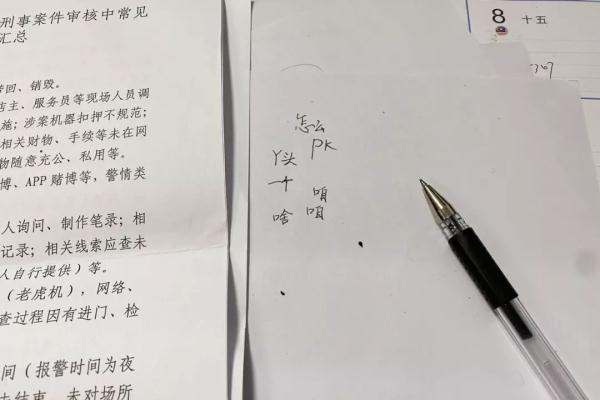 刑事案件审核中常见
汇总
回、销毁。
店主、服务员等现场人员调
施；涉案机器扣押不规范；
相关财物、手续等未在网
物随意充公、私用等。
博、APP 赌博等，警情类
人询问、制作笔录；相
记录；相关线索应查未
人自行提供）等。
（老虎机），网络、
查过程因有进门、检
间（报警时间为夜
结束，未对场所
怎么
PK
丫头
一个
啥
咱
咱
8 十五